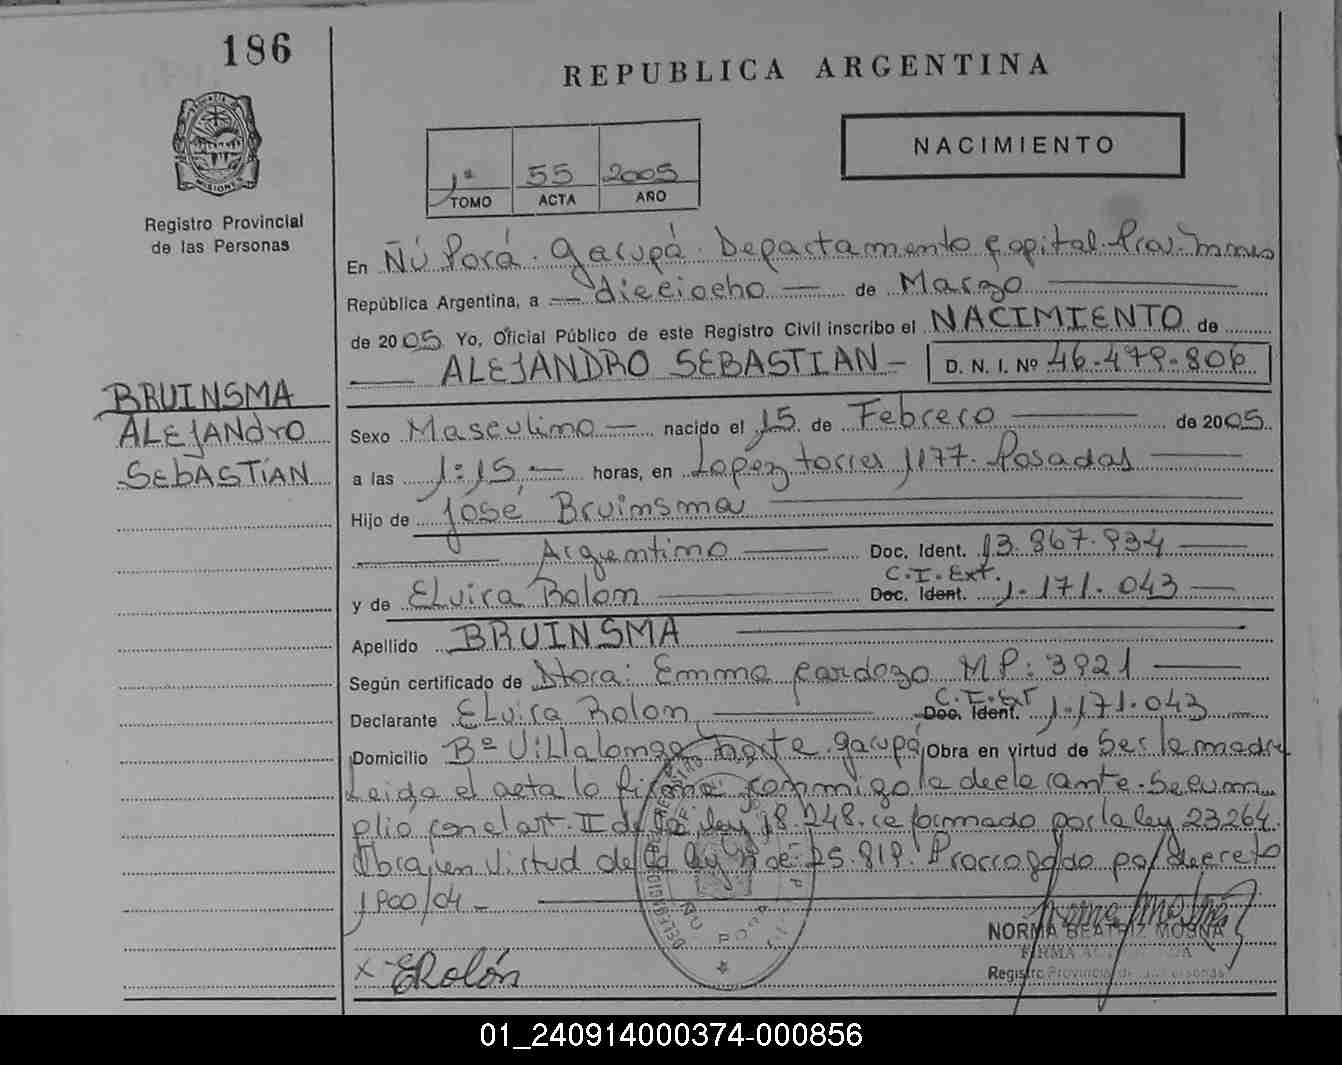 186
REPUBLICA ARGENTINA
NACIMIENTO
1º 55 2005
TOMO ACTA AÑO
MISIONES
Registro Provincial
de las Personas
En Ñú Porá. Garupá. Departamento Capital. Prov. Mnes
República Argentina, a — dieciocho — de Marzo
de 2005 Yo, Oficial Público de este Registro Civil inscribo el NACIMIENTO de
ALEJANDRO SEBASTIAN — D. N. I. Nº 46.479.806
BRUINSMA
ALEJANDRO
SEBASTIAN
Sexo Masculino — nacido el 15 de Febrero de 2005
a las 1:15 — horas, en Lopez torres 1177. Posadas
Hijo de José Bruinsma
Argentino Doc. Ident. 13.867.934
C.I. Ext.
y de ELvira Rolon Doc. Ident. 1.171.043
Apellido BRUINSMA
Según certificado de Dtora: Emma Cardozo MP: 3921
C.I. Ext
Declarante ELvira Rolon Doc. Ident. 1.171.043
Domicilio Bº Villalonga parte Garupá Obra en virtud de Ser la madre
Leida el acta la firma conmigo la declarante. Se cum
plió con el art. II de la ley 18.248. reformado por la ley 23264.
Obra en virtud de la ley nº 25.819. Prorrogado por decreto
1900/04 —
NORMA BEATRIZ MOSNA
FIRMA
Registro Provincial de las Personas
x ERolón
ÑU PORA
01_240914000374-000856